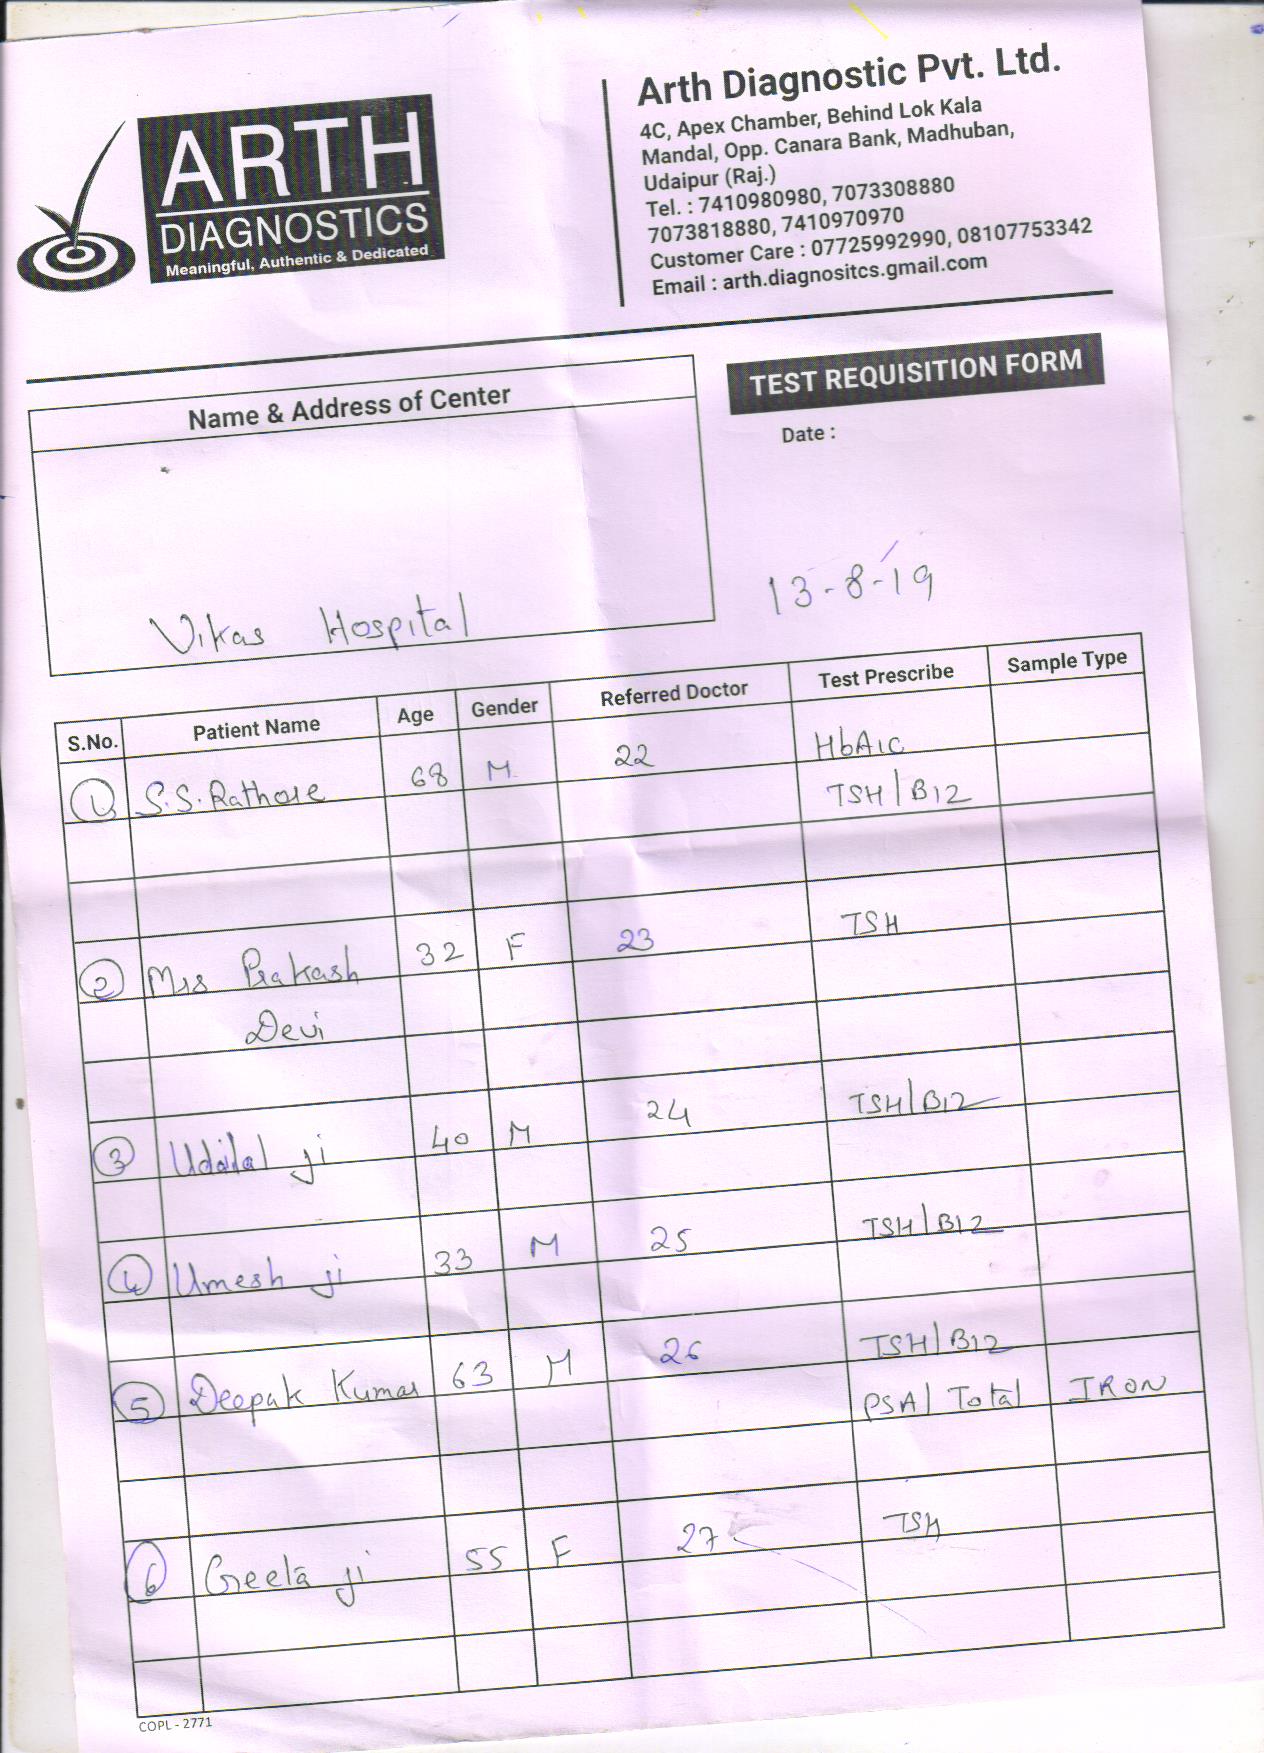 ARTH
DIAGNOSTICS
Meaningful, Authentic & Dedicated
Arth Diagnostic Pvt. Ltd.
4C, Apex Chamber, Behind Lok Kala
Mandal, Opp. Canara Bank, Madhuban,
Udaipur (Raj.)
Tel. : 7410980980, 7073308880
7073818880, 7410970970
Customer Care : 07725992990, 08107753342
Email : arth.diagnositcs.gmail.com
Name & Address of Center
TEST REQUISITION FORM
Date :
Vikas Hospital
13-8-19
S.No. Patient Name Age Gender Referred Doctor Test Prescribe Sample Type
1 S.S. Rathore 68 M 22 HbA1C
TSH/B12
2 Mrs Prakash 32 F 23 TSH
Devi
3 Udailal ji 40 M 24 TSH/B12
4 Umesh ji 33 M 25 TSH/B12
5 Deepak Kumar 63 M 26 TSH/B12
PSA/ Total IRON
6 Geeta ji 55 F 27 TSH
COPL - 2771